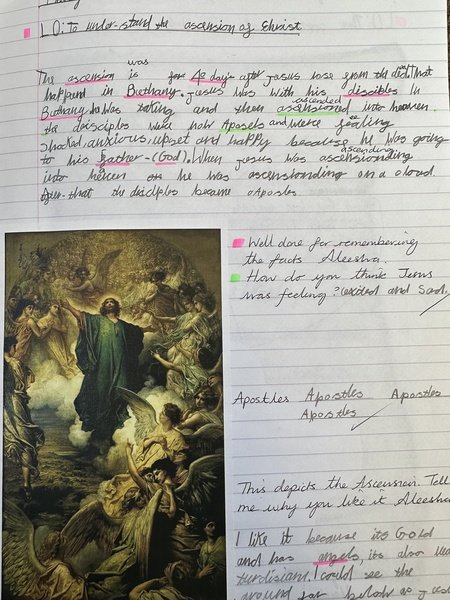 LO: To understand the ascension of Christ
was
The ascension is for 40 days after Jesus rose from the That
happend in Bethany. Jesus was with his disciples in
ascended
Bethany he was talking and then into heaven.
the disciples were now and were feeling
anxious, upset and happy because he was going
to his father-(God). When Jesus was
ascending
into on he was on a cloud.
that the disciples became Apostles.
Well done for remembering
the facts Aleesha.
How do you think Jesus
was feeling? and Sad.
Apostles Apostles Apostles
Apostles
This depicts the Ascension. Tell
me why you like it Aleesha
I like it because its Gold
and has angels, its also
I could see the